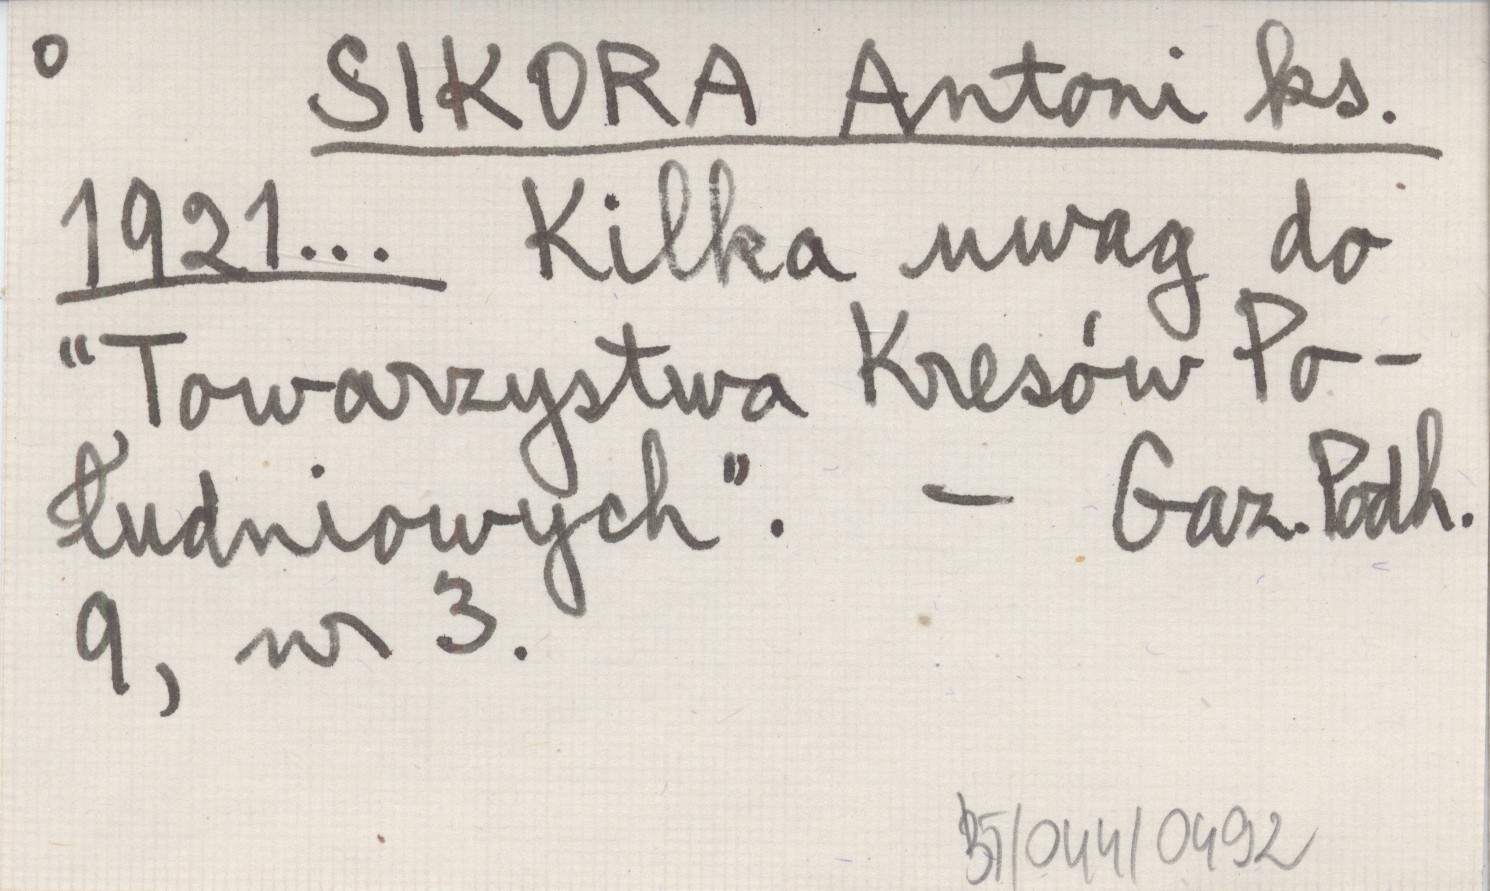 o SIKORA Antoni ks.
1921... Kilka uwag do
"Towarzystwa Kresów Po-
łudniowych". – Gaz. Podh.
9, nr 3.
BT/044/0492